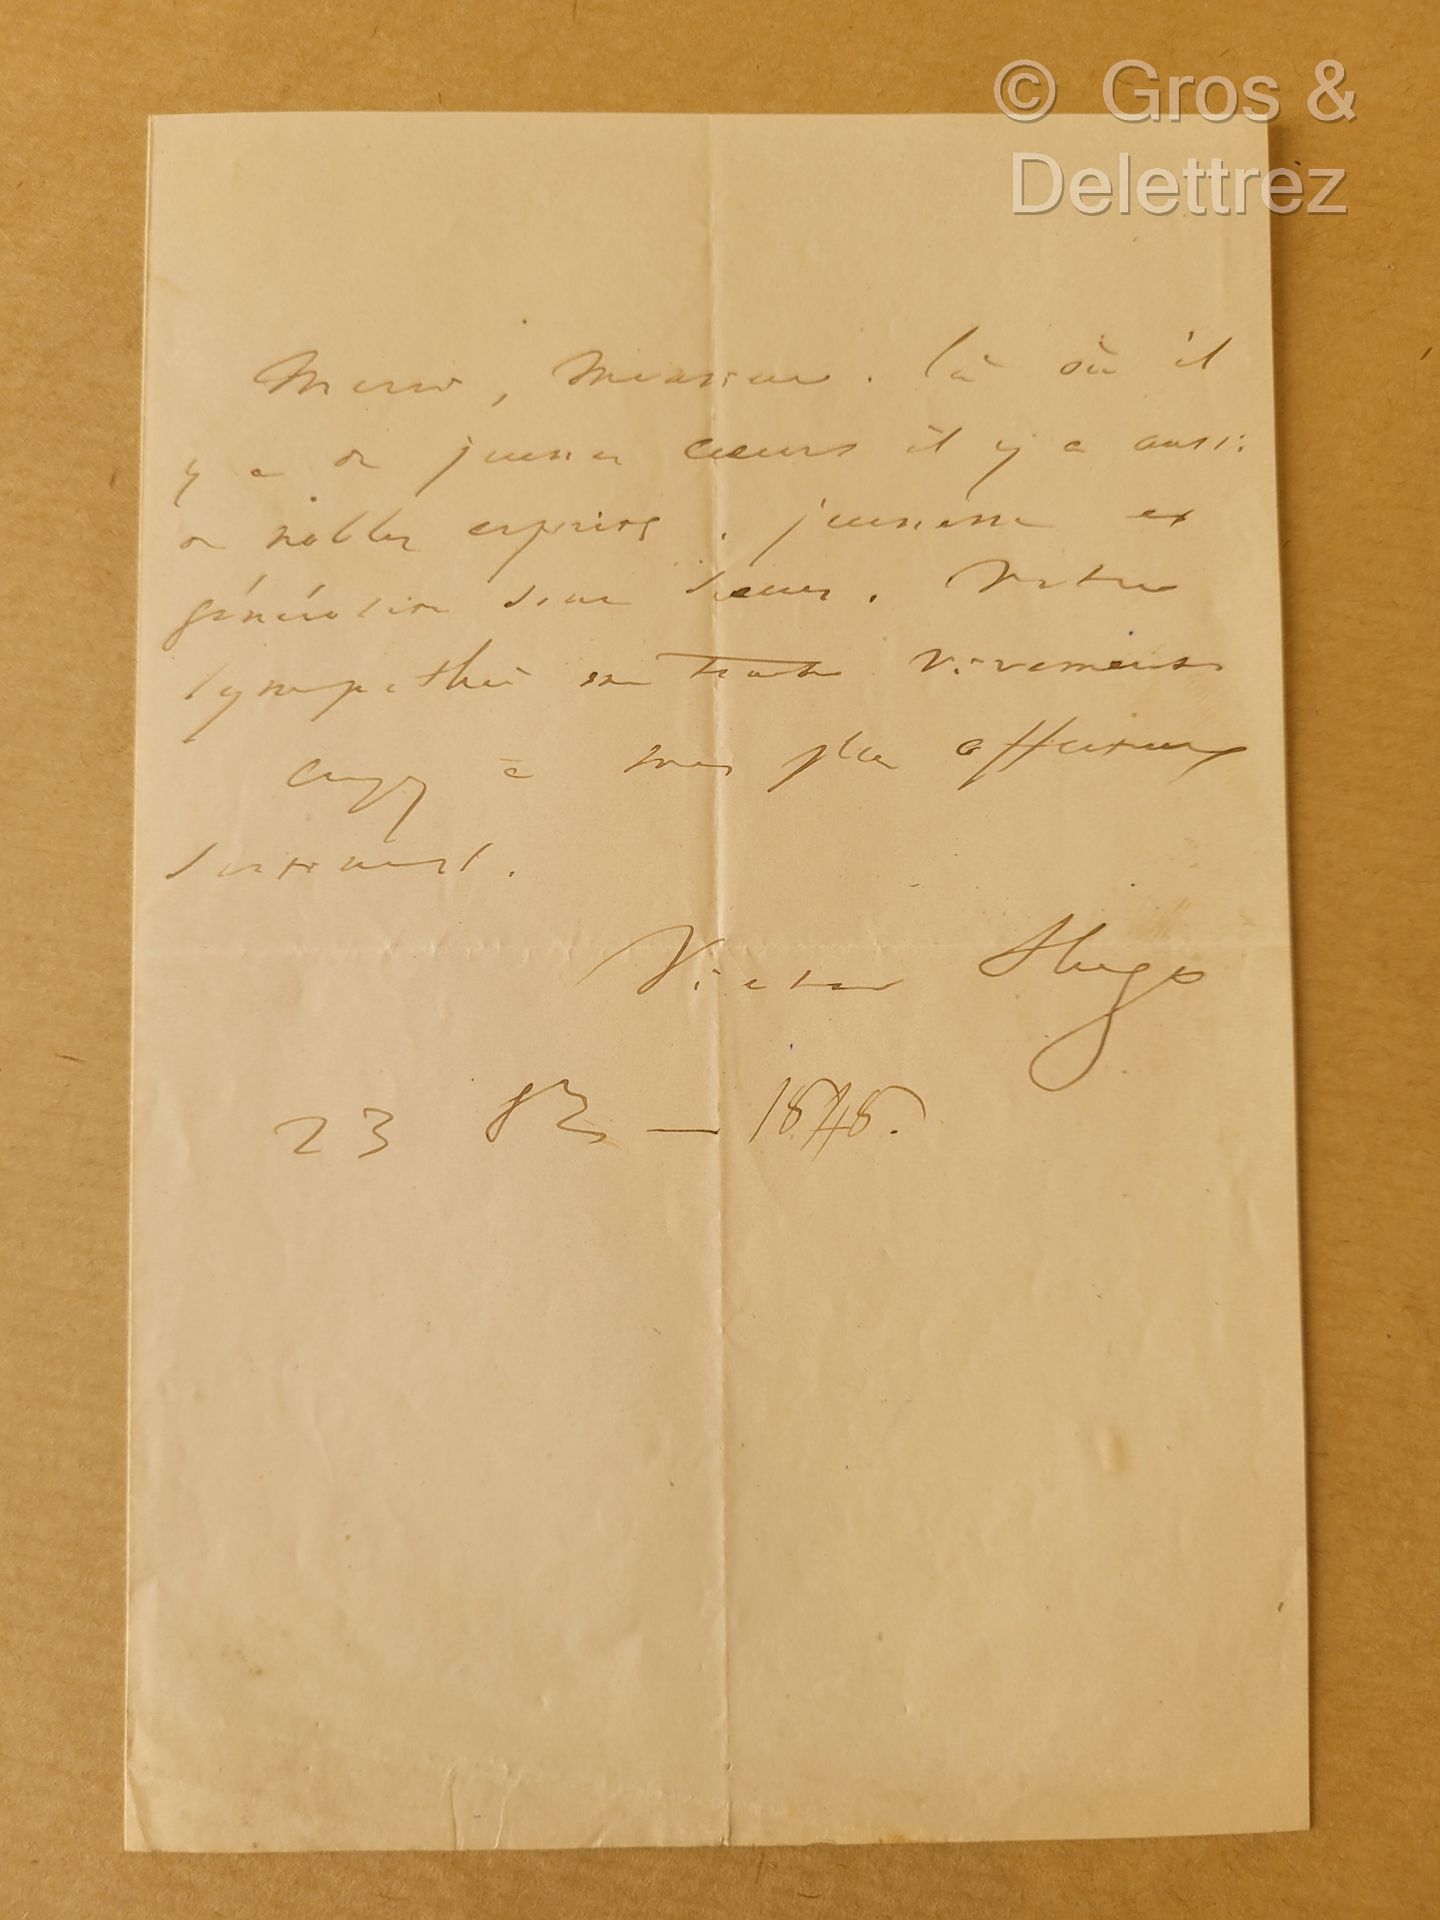 © Gros &
Delettrez
Merci, Monsieur. là où il
y a de jeunes cœurs il y a aussi
de nobles esprits. jeunesse et
générosité sont sœurs. Votre
sympathie me touche vivement
croyez à mes plus affectueux
sentiments.
Victor Hugo
23 - 1848.